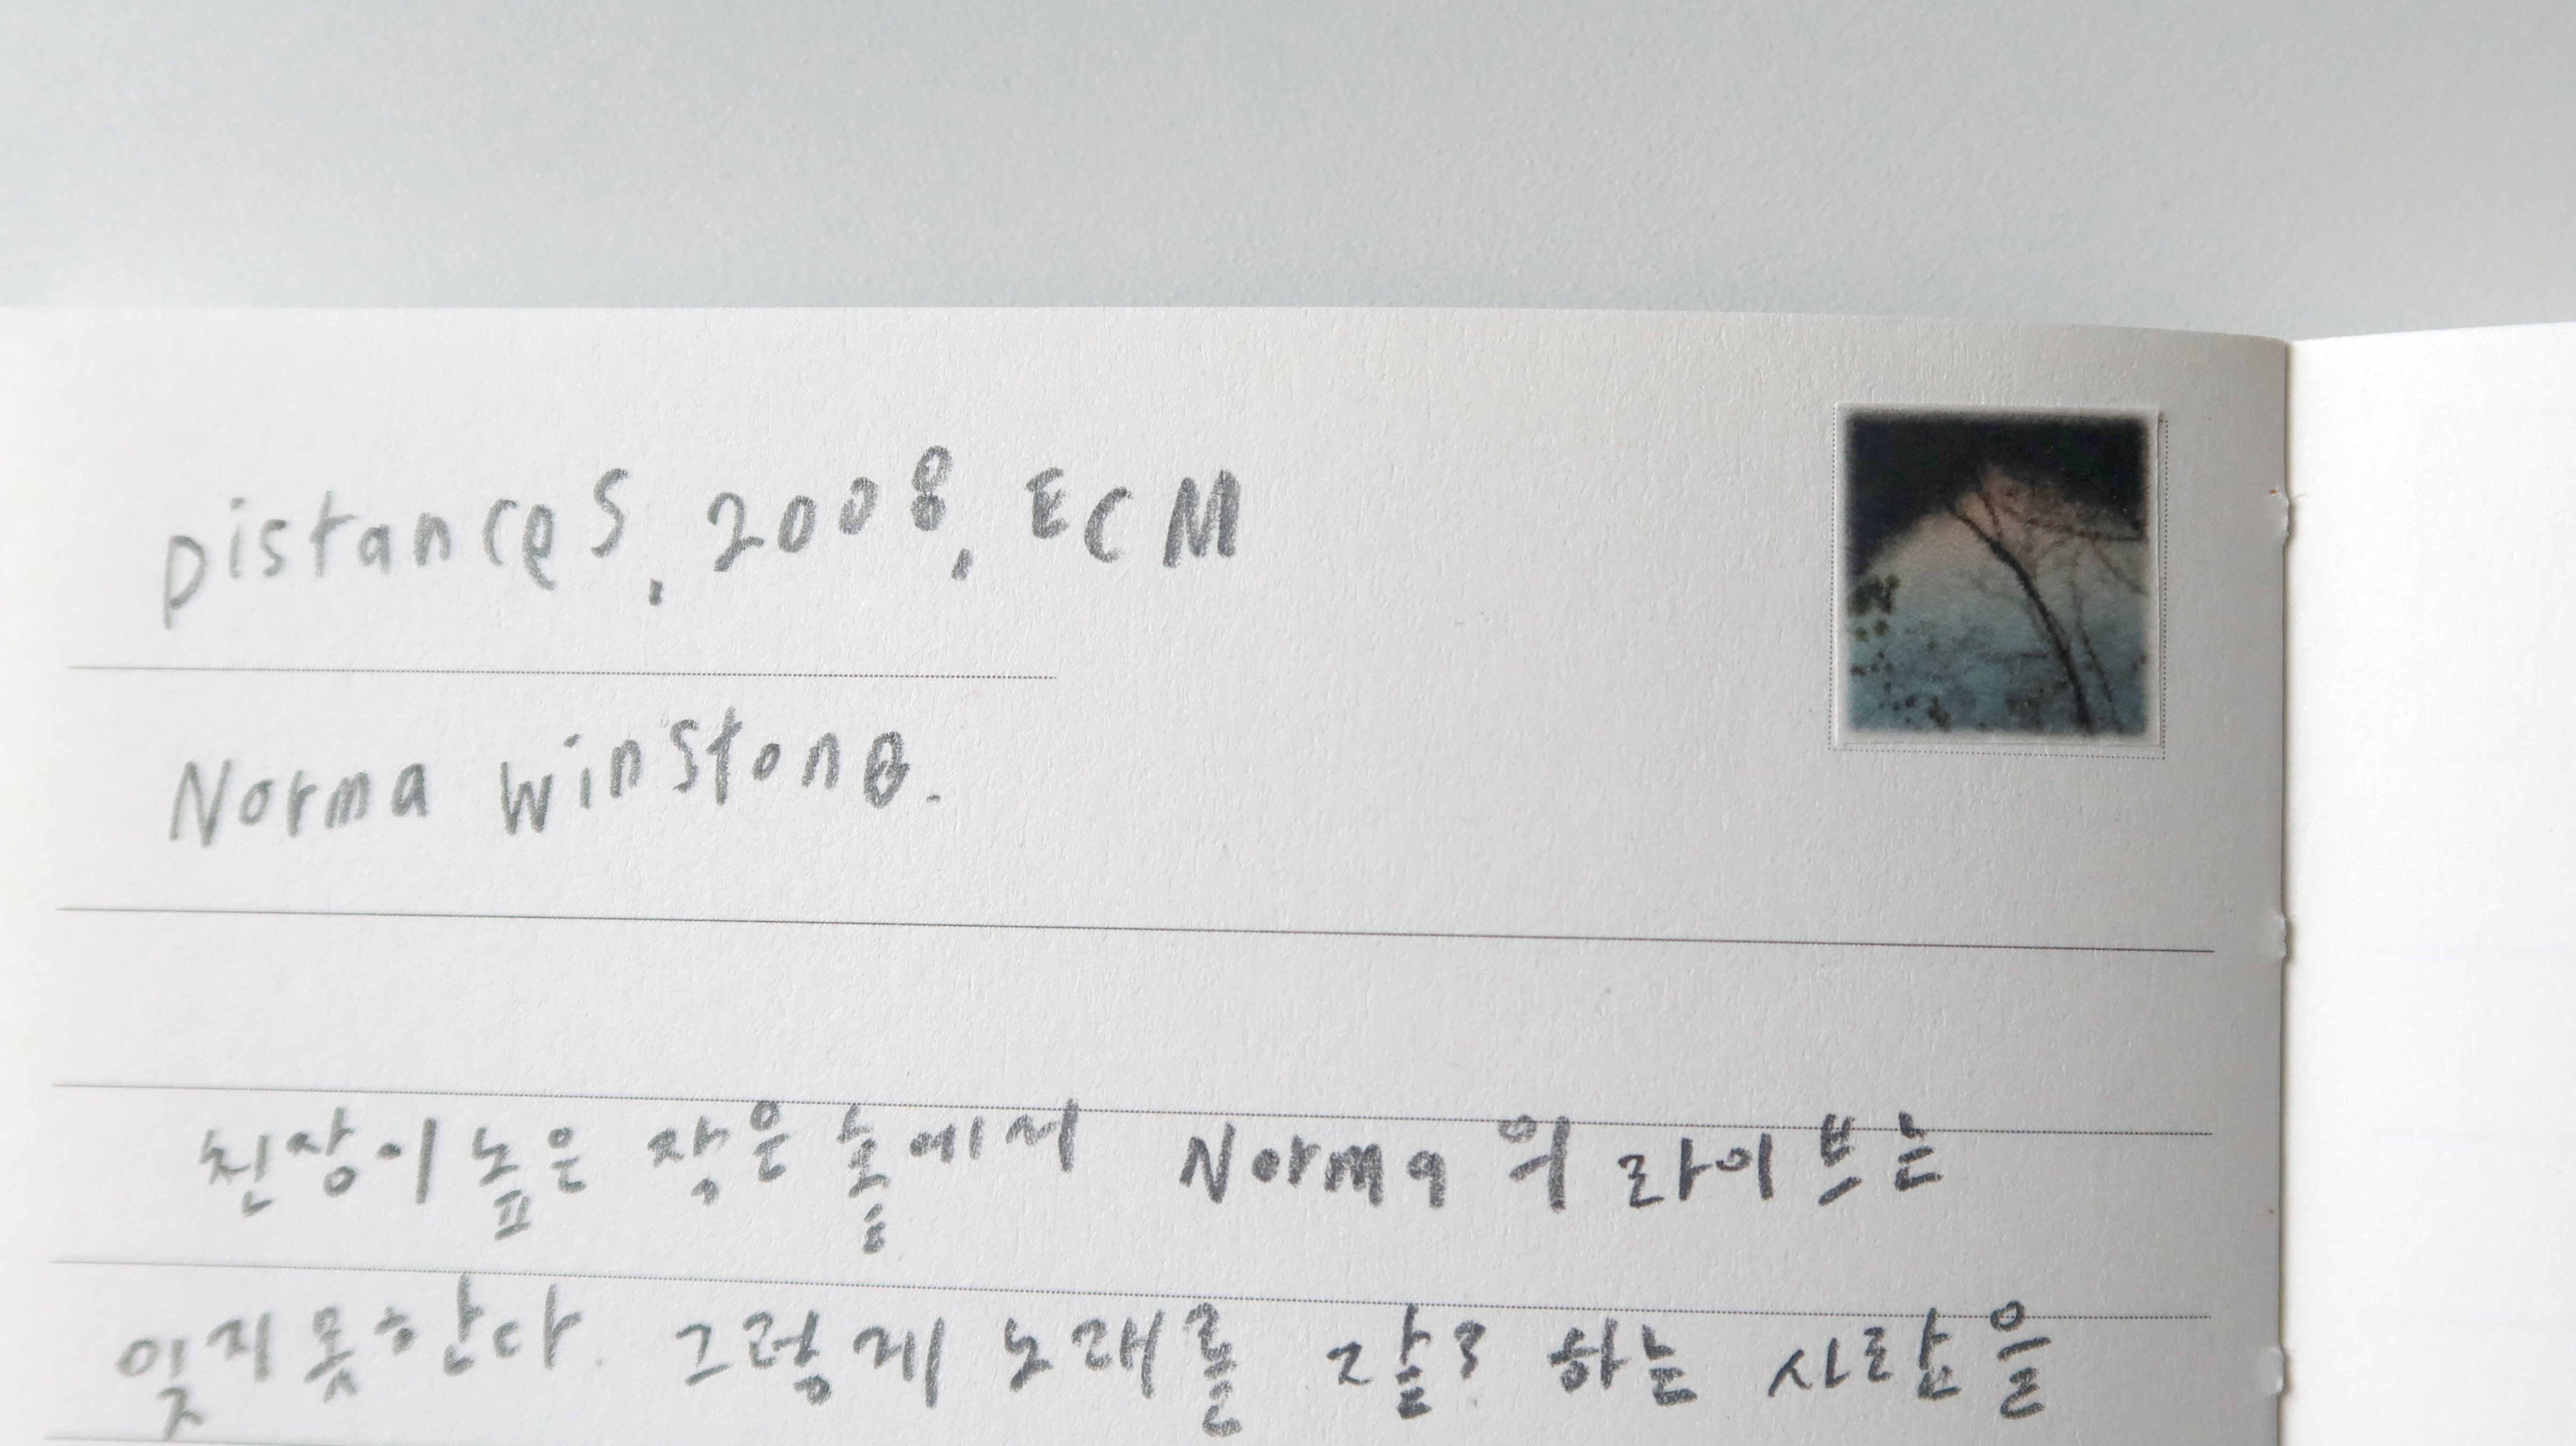 Distances, 2008, ECM
Norma winstone.
천장이 높은 작은 홀에서 Norma의 라이브는
잊지 못한다. 그렇게 노래를 잘 하는 사람을